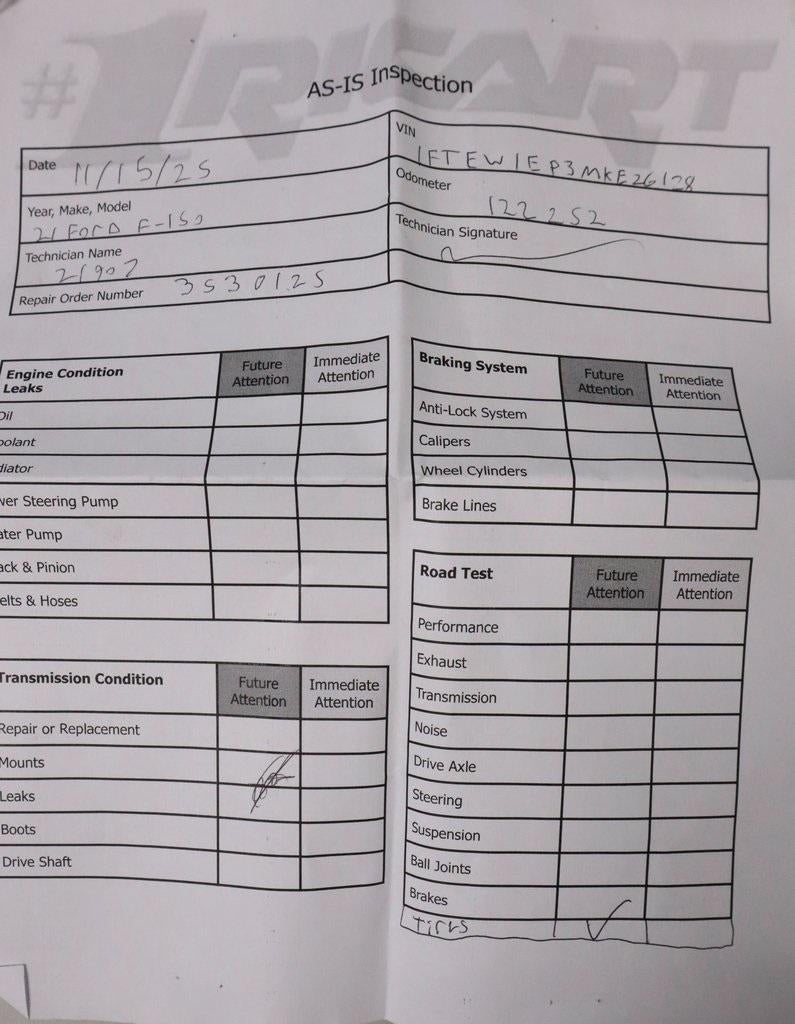 #1 RICART
AS-IS Inspection
Date 11/15/25
VIN 1FTEW1EP3MKE26128
Year, Make, Model
21 FORD F-150
Odometer 122252
Technician Name
21907
Technician Signature
Repair Order Number 3530125
Engine Condition
Leaks
Future
Attention
Immediate
Attention
Oil
oolant
diator
wer Steering Pump
ater Pump
ack & Pinion
elts & Hoses
Transmission Condition
Future
Attention
Immediate
Attention
Repair or Replacement
Mounts
Leaks
Boots
Drive Shaft
Braking System
Future
Attention
Immediate
Attention
Anti-Lock System
Calipers
Wheel Cylinders
Brake Lines
Road Test
Future
Attention
Immediate
Attention
Performance
Exhaust
Transmission
Noise
Drive Axle
Steering
Suspension
Ball Joints
Brakes
Tires ✓